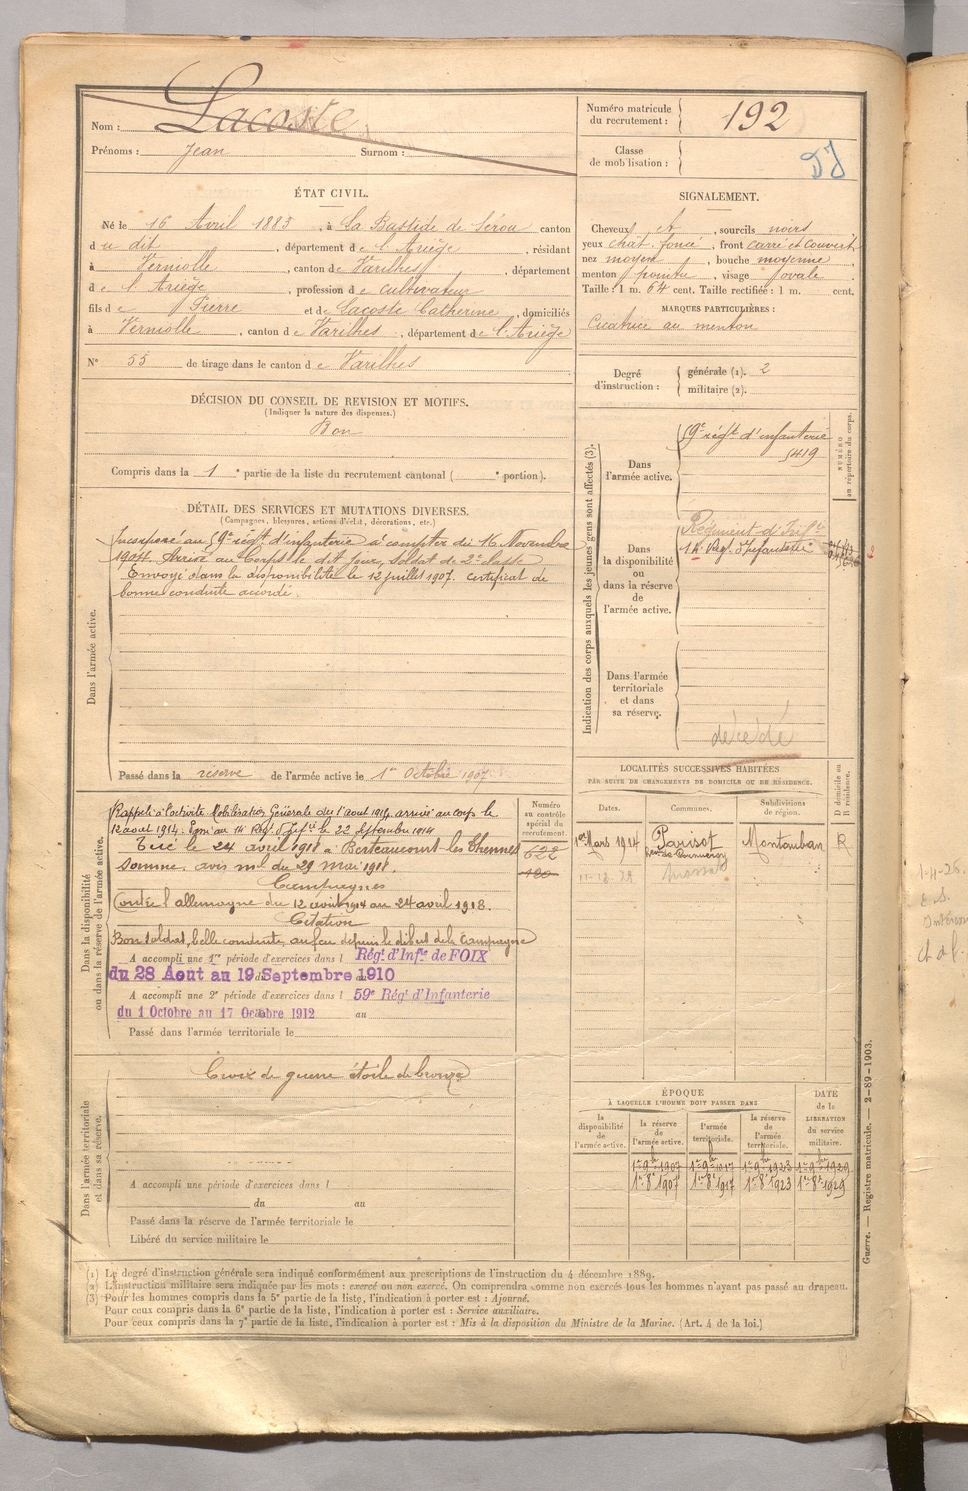 Nom : Lacoste
Prénoms : Jean Surnom :
Numéro matricule du recrutement : 192
Classe de mobilisation :
ÉTAT CIVIL.
Né le 16 Avril 1883, à La Bastide de Sérou canton
du dit, département de l'Ariège, résidant
à Verniolle, canton de Varilhes, département
de l'Ariège, profession de cultivateur
fils de Pierre et de Lacoste Catherine, domiciliés
à Verniolle, canton de Varilhes, département de l'Ariège
N° 55 de tirage dans le canton de Varilhes
SIGNALEMENT.
Cheveux et, sourcils noirs
yeux chât. foncé, front carré et couvert
nez moyen, bouche moyenne
menton pointu, visage ovale
Taille : 1 m. 64 cent. Taille rectifiée : 1 m. cent.
MARQUES PARTICULIÈRES :
Cicatrice au menton
Degré d'instruction : générale (1). 2
militaire (2).
DÉCISION DU CONSEIL DE REVISION ET MOTIFS.
(Indiquer la nature des dispenses.)
Bon
Compris dans la 1e partie de la liste du recrutement cantonal ( e portion).
DÉTAIL DES SERVICES ET MUTATIONS DIVERSES.
(Campagnes, blessures, actions d'éclat, décorations, etc.)
Dans l'armée active.
Incorporé au 59e régt d'infanterie à compter du 16 Novembre
1904. Arrivé au Corps le dit jour, soldat de 2e classe
Envoyé dans la disponibilité le 12 juillet 1907. certificat de
bonne conduite accordé.
Passé dans la réserve de l'armée active le 1er Octobre 1907
Indication des corps auxquels les jeunes gens sont affectés (3).
NUMÉRO au répertoire du corps.
Dans l'armée active.
59e régt d'infanterie
5419
Dans la disponibilité ou dans la réserve de l'armée active.
Régiment d'Inf.
14 Rég. d'infanterie
Dans l'armée territoriale et dans sa réserve.
décédé
Dans la disponibilité ou dans la réserve de l'armée active.
Rappelé à l'activité Mobilisation Générale du 1 aout 1914 arrivé au corps le
12 aout 1914. Passé au 14 Rég. d'Inf. le 22 septembre 1914
Tué le 24 avril 1918 à Berteaucourt-les-Thennes
Somme. avis mel du 29 mai 1918.
Campagnes
Contre l'allemagne du 12 août 1914 au 24 avril 1918.
Citation
Bon soldat, belle conduite au feu depuis le début de la Campagne
A accompli une 1re période d'exercices dans l Régt d'Infie de FOIX
du 28 Aout au 19 Septembre 1910
A accompli une 2e période d'exercices dans l 59e Régt d'Infanterie
du 1 Octobre au 17 Octobre 1912 au
Passé dans l'armée territoriale le
Numéro au contrôle spécial du recrutement.
622
LOCALITÉS SUCCESSIVES HABITÉES
PAR SUITE DE CHANGEMENTS DE DOMICILE OU DE RÉSIDENCE.
Dates. Communes. Subdivisions de région. D domicile ou R résidence.
1er Mars 1914 Parisot Montauban R
Dans l'armée territoriale et dans sa réserve.
Croix de guerre étoile de bronze
A accompli une période d'exercices dans l
du au
Passé dans la réserve de l'armée territoriale le
Libéré du service militaire le
ÉPOQUE
À LAQUELLE L'HOMME DOIT PASSER DANS
la disponibilité de l'armée active. la réserve de l'armée active. l'armée territoriale. la réserve de l'armée territoriale. DATE de la LIBÉRATION du service militaire.
1er 9bre 1907 1er 9bre 1917 1er 9bre 1923 1er 9bre 1929
1er 8bre 1907 1er 8bre 1917 1er 8bre 1923 1er 8bre 1929
Guerre. — Registre matricule. — 2-89-1903.
(1) Le degré d'instruction générale sera indiqué conformément aux prescriptions de l'instruction du 4 décembre 1889.
(2) L'instruction militaire sera indiquée par les mots : exercé ou non exercé. On comprendra comme non exercés tous les hommes n'ayant pas passé au drapeau.
(3) Pour les hommes compris dans la 5e partie de la liste, l'indication à porter est : Ajourné.
Pour ceux compris dans la 6e partie de la liste, l'indication à porter est : Service auxiliaire.
Pour ceux compris dans la 7e partie de la liste, l'indication à porter est : Mis à la disposition du Ministre de la Marine. (Art. 4 de la loi.)